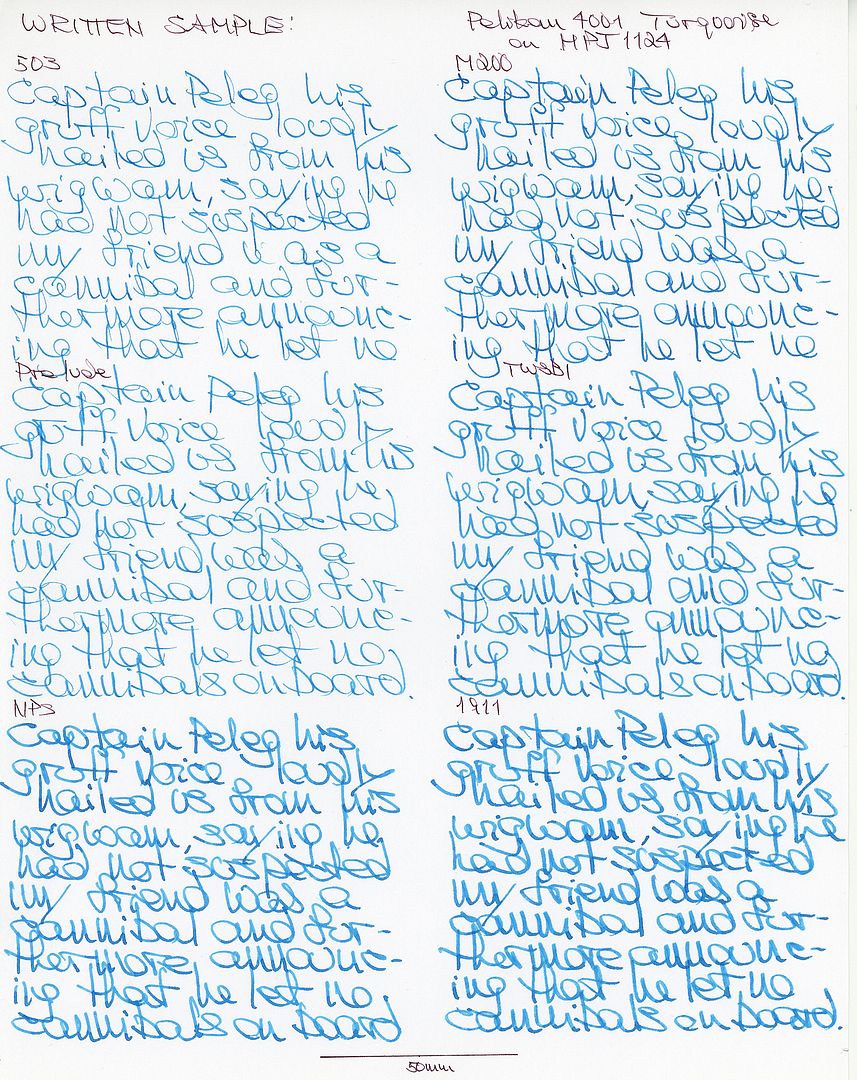 WRITTEN SAMPLE:
Pelikan 4001 Turquoise
on MPJ 1124
503
Captain Peleg his
gruff voice loudly
hailed us from his
wigwam, saying he
had not suspected
my friend was a
cannibal and fur-
thermore announc-
ing that he let no
M200
Captain Peleg his
gruff voice loudly
hailed us from his
wigwam, saying he
had not suspected
my friend was a
cannibal and fur-
thermore announc-
ing that he let no
Prelude
Captain Peleg his
gruff voice loudly
hailed us from his
wigwam, saying he
had not suspected
my friend was a
cannibal and fur-
thermore announc-
ing that he let no
cannibals on board.
TWSBI
Captain Peleg his
gruff voice loudly
hailed us from his
wigwam, saying he
had not suspected
my friend was a
cannibal and fur-
thermore announc-
ing that he let no
cannibals on board.
NPS
Captain Peleg his
gruff voice loudly
hailed us from his
wigwam, saying he
had not suspected
my friend was a
cannibal and fur-
thermore announc-
ing that he let no
cannibals on board
1911
Captain Peleg his
gruff voice loudly
hailed us from his
wigwam, saying he
had not suspected
my friend was a
cannibal and fur-
thermore announc-
ing that he let no
cannibals on board.
50mm